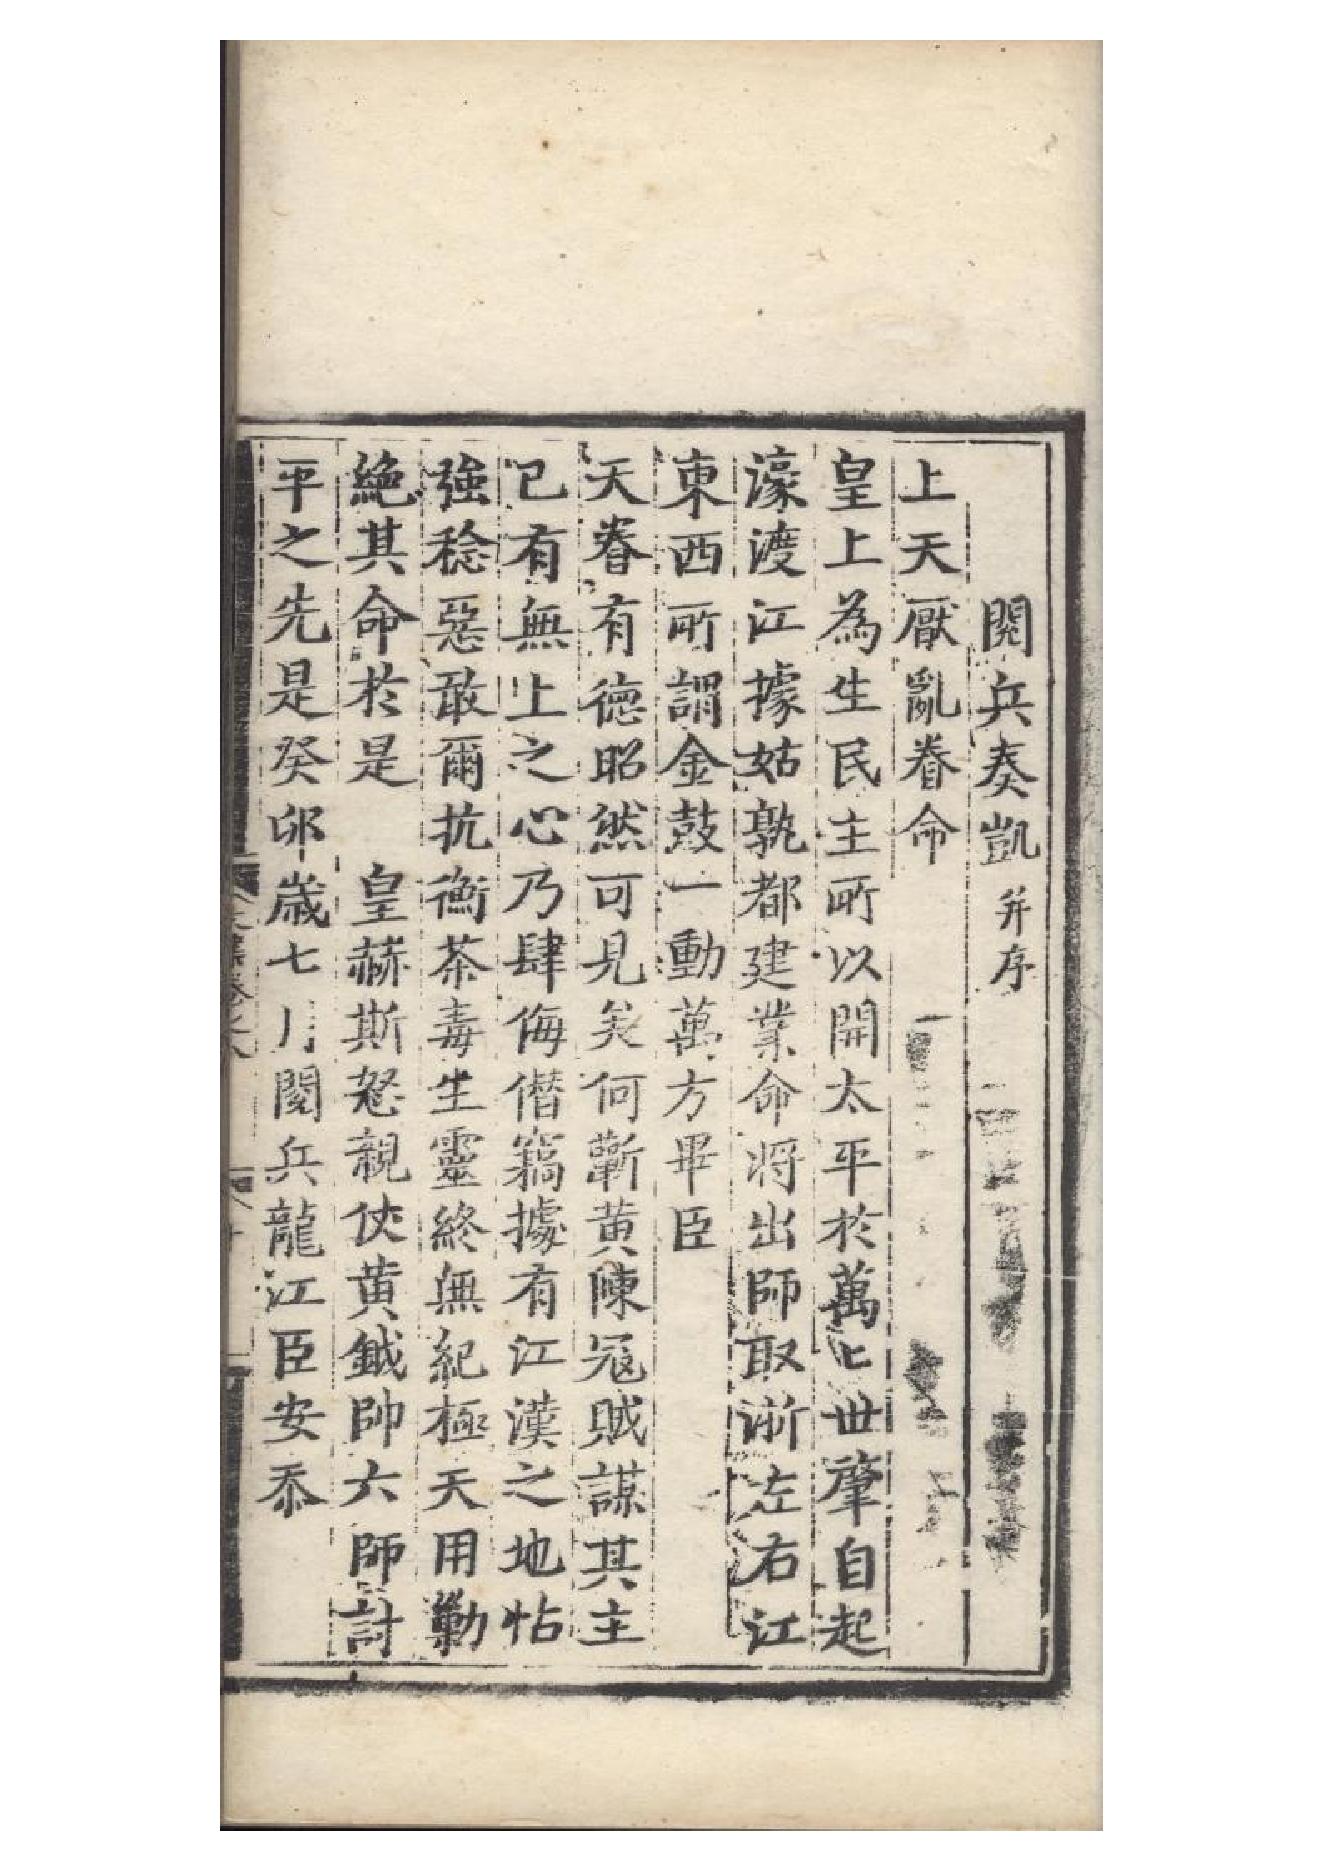 閱兵奏凱并序
上天厭亂眷命
皇上為生民主所以開太平於萬世肇自起
濠渡江據姑孰都建業命將出師取浙左右江
東西所謂金鼓一動萬方畢臣
天眷有德昭然可見矣何蘄黃陳冦賊謀其主
已有無上之心乃肆侮僣竊據有江漢之地怙
強稔惡敢爾抗衡荼毒生靈終無紀極天用勦
絕其命於是　皇赫斯怒親仗黃鉞帥六師討
平之先是癸卯歲七月閱兵龍江臣安忝